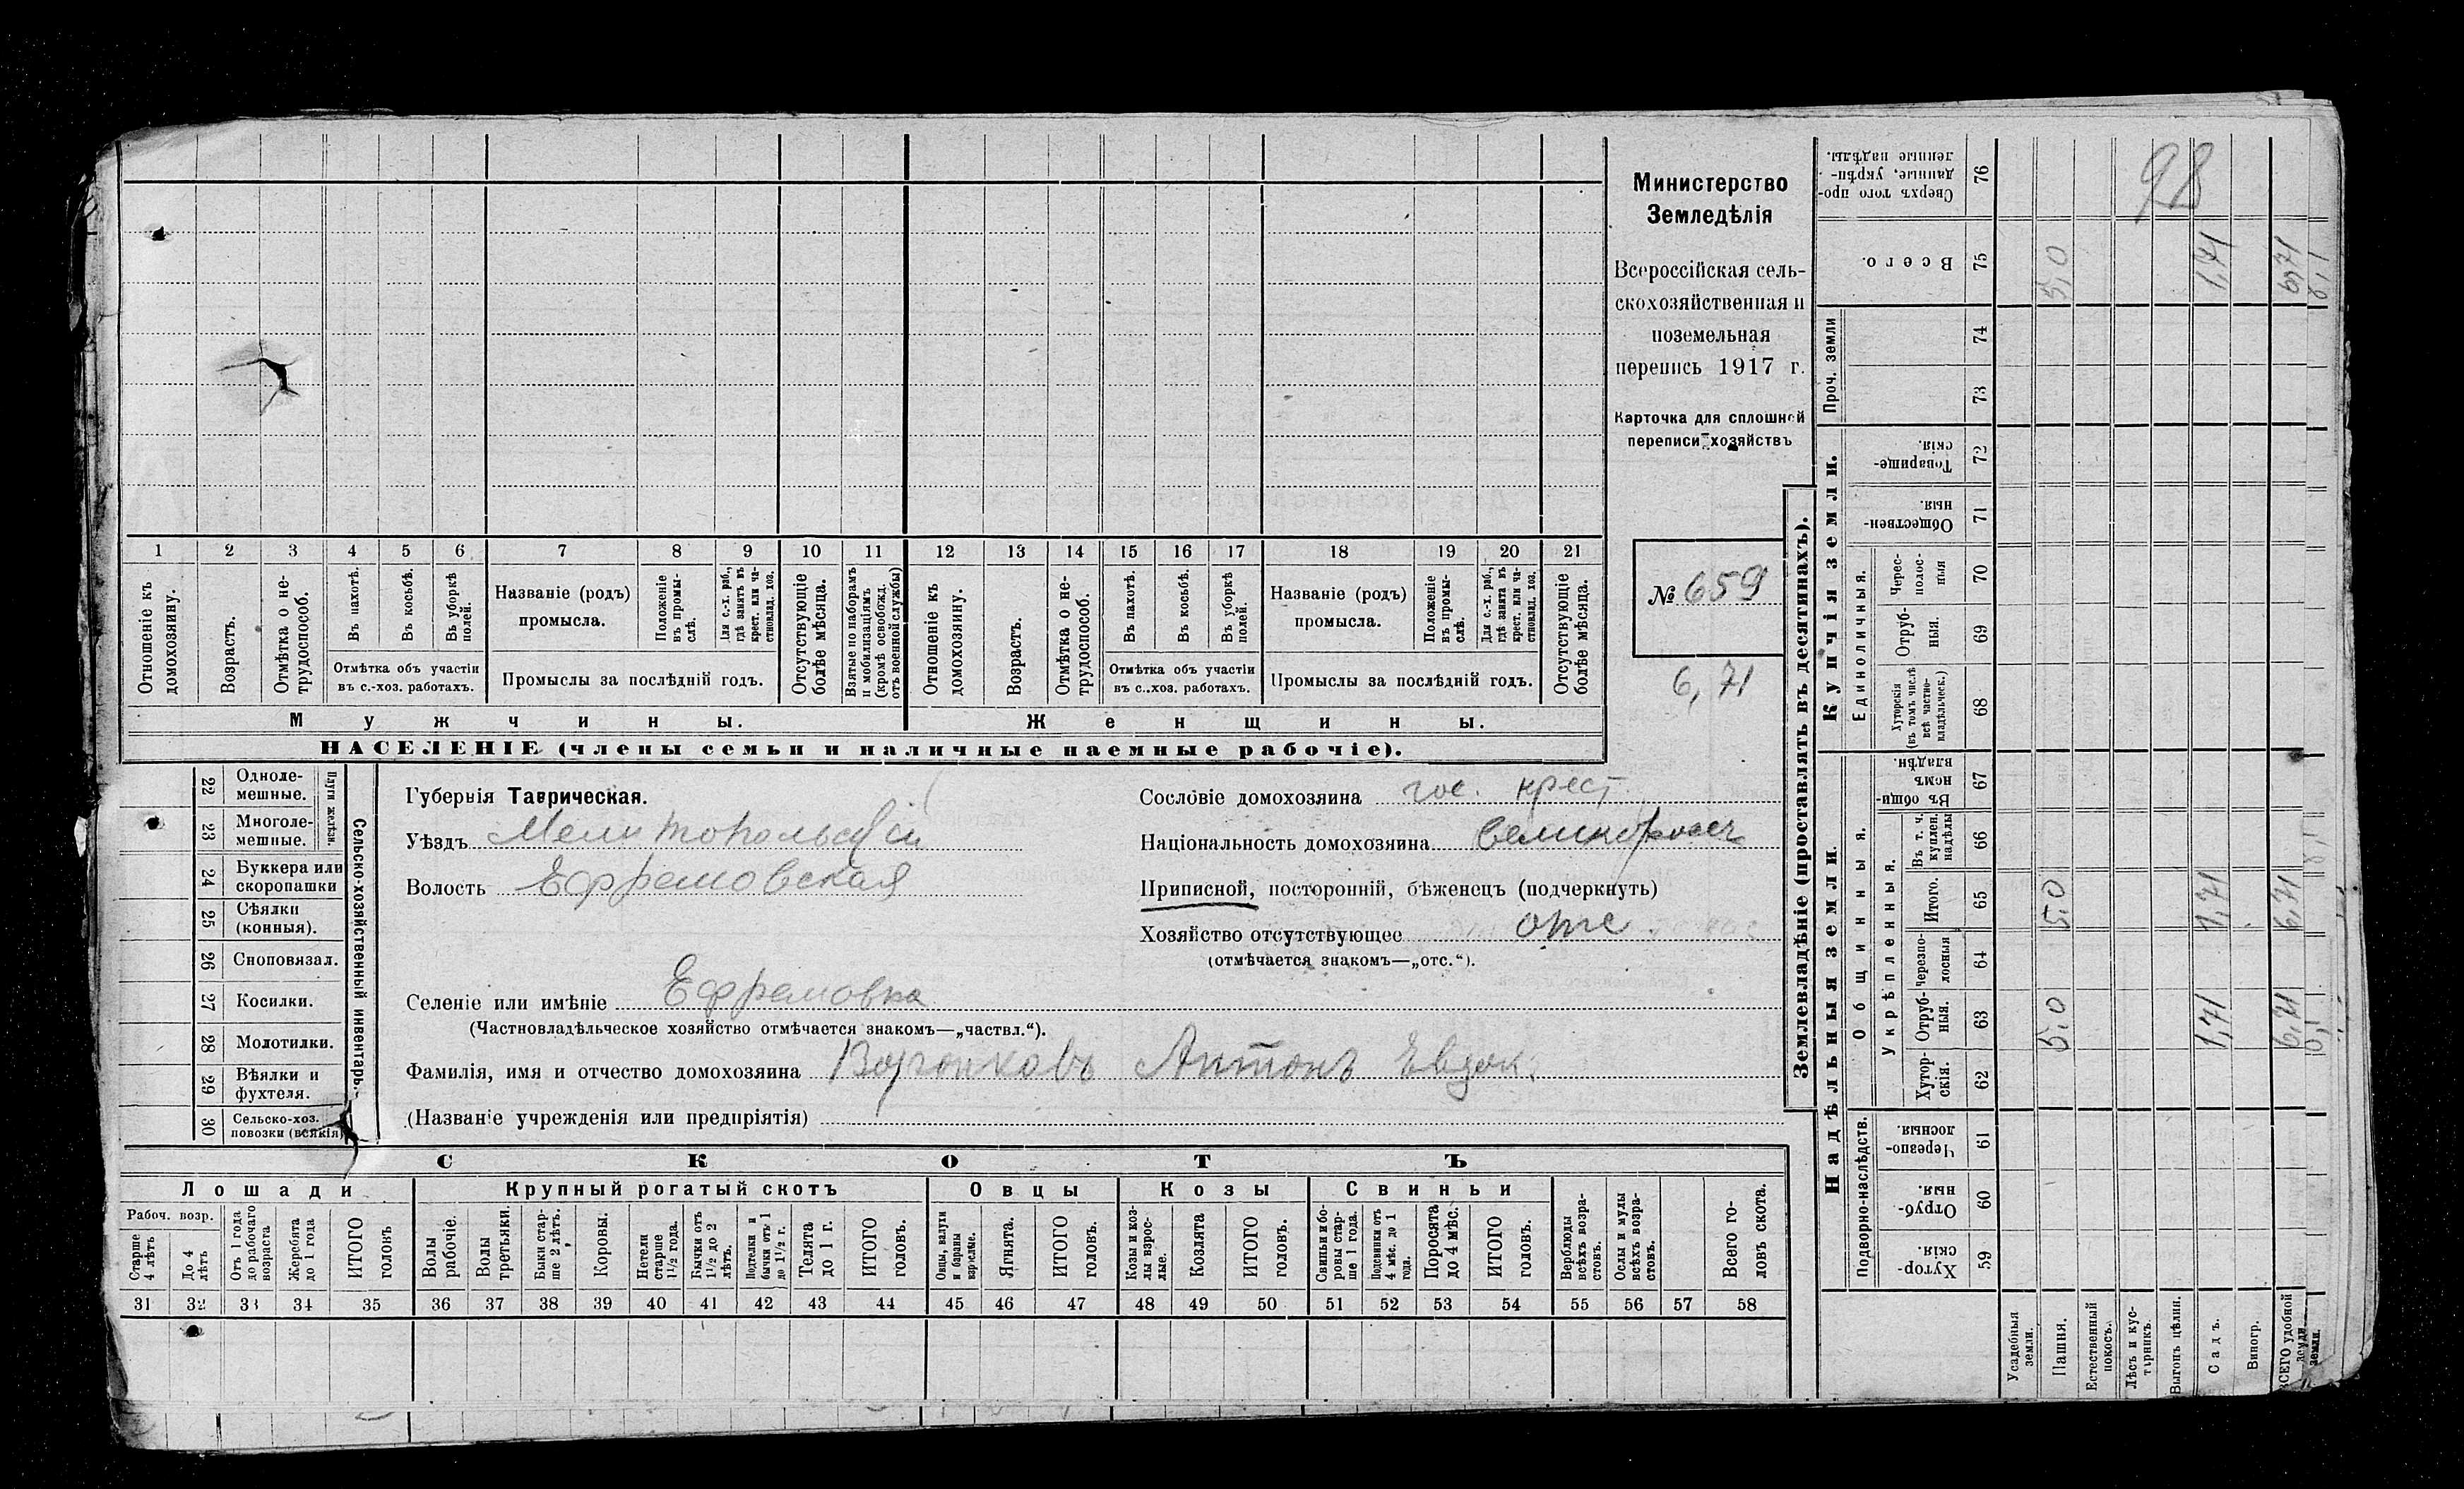 Министерство
Земледѣлія
Всероссійская сель-
скохозяйственная и
поземельная
перепись 1917 г.
Карточка для сплошной
переписи хозяйствъ
№ 659
6,71
98
1 2 3 4 5 6 7 8 9 10 11 12 13 14 15 16 17 18 19 20 21
Отношеніе къ домохозяину.
Возрастъ.
Отмѣтка о не-трудоспособ.
Въ пахотѣ.
Въ косьбѣ.
Въ уборкѣ полей.
Отмѣтка объ участіи
въ с.-хоз. работахъ.
Названіе (родъ)
промысла.
Положеніе въ промы-слѣ.
Для с.-х. раб., гдѣ занятъ въ крест. или ча-стновлад. хоз.
Промыслы за послѣдній годъ.
Отсутствующіе болѣе мѣсяца.
Взятые по наборамъ и мобилизаціямъ (кромѣ освобожд. отъ военной службы)
Отношеніе къ домохозяину.
Возрастъ.
Отмѣтка о не-трудоспособ.
Въ пахотѣ.
Въ косьбѣ.
Въ уборкѣ полей.
Отмѣтка объ участіи
въ с..хоз. работахъ.
Названіе (родъ)
промысла.
Положеніе въ промы-слѣ.
Для с.-х. раб., гдѣ занята въ крест. или ча-стновлад. хоз.
Промыслы за послѣдній годъ.
Отсутствующіе болѣе мѣсяца.
Мужчины.
Женщины.
НАСЕЛЕНІЕ (члены семьи и наличные наемные рабочіе).
Сельско-хозяйственный инвентарь.
Плуги желѣзн.
22 Одноле-мешные.
23 Многоле-мешные.
24 Буккера или скоропашки
25 Сѣялки (конныя).
26 Сноповязал.
27 Косилки.
28 Молотилки.
29 Вѣялки и фухтеля.
30 Сельско-хоз. повозки (всякія)
Губернія Таврическая.
Уѣздъ Мелитопольскій
Волость Ефремовская
Селеніе или имѣніе Ефремовка
(Частновладѣльческое хозяйство отмѣчается знакомъ—„частвл.“).
Фамилія, имя и отчество домохозяина Воронковъ Антонъ Евдок.
(Названіе учрежденія или предпріятія)
Сословіе домохозяина гос. крест.
Національность домохозяина великороссъ
Приписной, посторонній, бѣженецъ (подчеркнуть)
Хозяйство отсутствующее отс.
(отмѣчается знакомъ—„отс.“).
СКОТЪ
Лошади
Крупный рогатый скотъ
Овцы
Козы
Свиньи
Рабоч. возр.
Старше 4 лѣтъ
До 4 лѣтъ
Отъ 1 года до рабочаго возраста
Жеребята до 1 года
ИТОГО головъ
Волы рабочіе.
Волы третьяки.
Быки стар-ше 2 лѣтъ.
Коровы.
Нетели старше 1½ года.
Бычки отъ 1½ до 2 лѣтъ.
Подтелки и бычки отъ 1 до 1½ г.
Телята до 1 г.
ИТОГО головъ.
Овцы, валухи и бараны взрослые.
Ягнята.
ИТОГО головъ.
Козы и коз-лы взрос-лые.
Козлята
ИТОГО головъ.
Свиньи и бо-ровы стар-ше 1 года.
Подсвинки отъ 4 мѣс. до 1 года.
Поросята до 4 мѣс.
ИТОГО головъ.
Верблюды всѣхъ возра-стовъ.
Ослы и мулы всѣхъ возра-стовъ.
Всего го-ловъ скота.
31 32 33 34 35 36 37 38 39 40 41 42 43 44 45 46 47 48 49 50 51 52 53 54 55 56 57 58
Землевладѣніе (проставлять въ десятинахъ).
Надѣльныя земли.
Купчія земли.
Проч. земли
Подворно-наслѣдств.
Общинныя.
Укрѣпленныя.
Единоличныя.
Сверхъ того про-данные, укрѣп-ленные надѣлы. 76
Всего. 75 5,0 1,71 6,71
74
73
Товарище-скія. 72
Обществен-ныя. 71
Черес-полос-ныя 70
Отруб-ныя. 69
Хуторскія (въ томъ числѣ всѣ частно-владѣльческ.) 68
Въ общи-номъ владѣн. 67
Въ т. ч. куплен. надѣлы 66
Итого. 65 5,0 1,71 6,71
Черезпо-лосныя 64
Отруб-ныя. 63 5,0 1,71 6,71
Хутор-скія. 62
Черезпо-лосныя. 61
Отруб-ныя. 60
Хутор-скія. 59
Усадебныя земли.
Пашня.
Естественный покосъ.
Лѣсъ и кус-тарникъ.
Выгонъ цѣлин.
Садъ.
Виногр.
ВСЕГО удобной земли